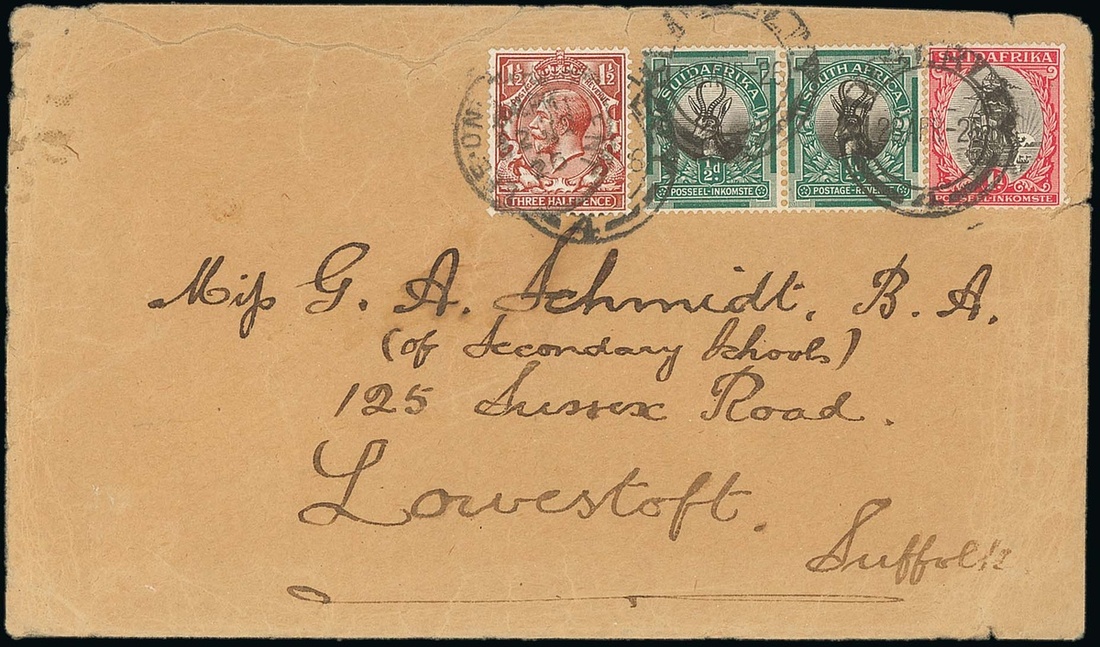 1½ 1½
THREE HALFPENCE
SUIDAFRIKA
½d
POSSEEL-INKOMSTE
SOUTH AFRICA
½d
POSTAGE-REVENUE
SUIDAFRIKA
POSSEEL-INKOMSTE
Miss G. A. Schmidt, B. A.
(of Secondary Schools)
125 Sussex Road.
Lowestoft.
Suffolk